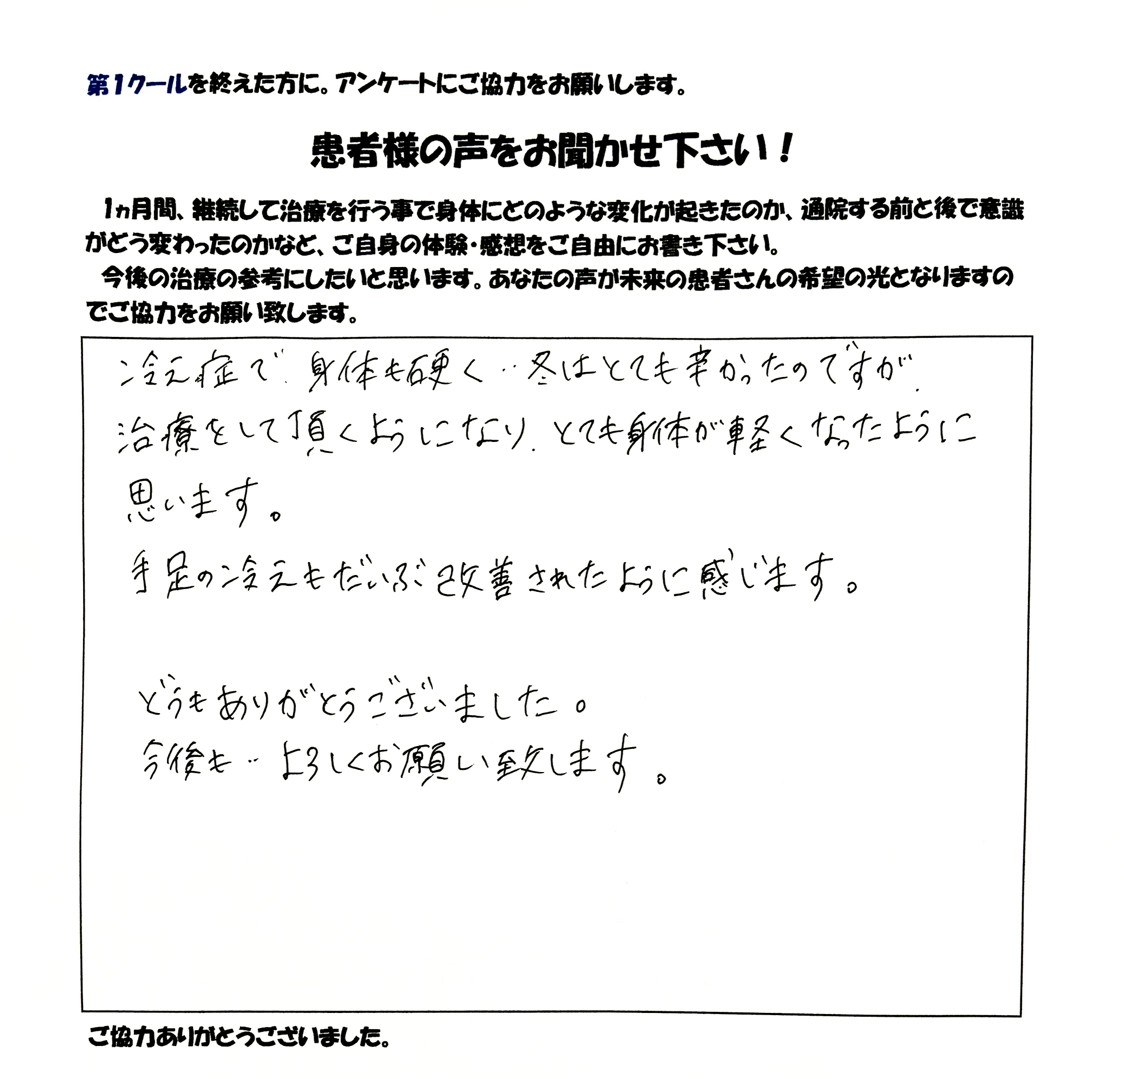 第1クールを終えた方に。アンケートにご協力をお願いします。
患者様の声をお聞かせ下さい！
1ヵ月間、継続して治療を行う事で身体にどのような変化が起きたのか、通院する前と後で意識
がどう変わったのかなど、ご自身の体験・感想をご自由にお書き下さい。
今後の治療の参考にしたいと思います。あなたの声が未来の患者さんの希望の光となりますの
でご協力をお願い致します。
冷え症で、身体も硬く‥冬はとても辛かったのですが、
治療をして頂くようになり、とても身体が軽くなったように
思います。
手足の冷えもだいぶ改善されたように感じます。
どうもありがとうございました。
今後も‥よろしくお願い致します。
ご協力ありがとうございました。